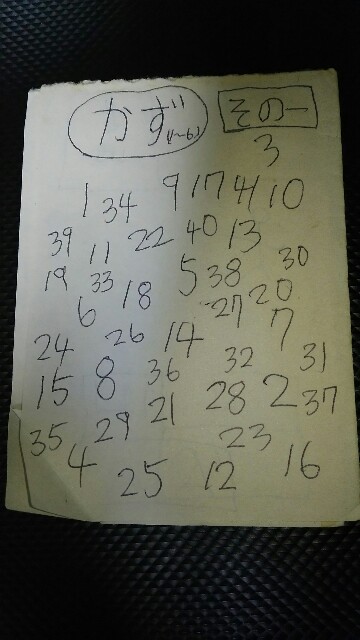 かず(1~61)
その一
3
1 34 9 17 41 10
39 11 22 40 13
19 33 18 5 38 30
6 27 20
24 26 14 7
15 8 36 32 31
35 29 21 28 2 37
4 23
25 12 16